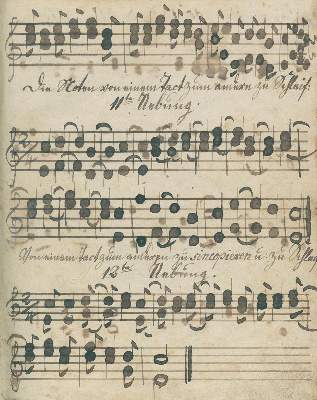 Die Noten von einem Tact zum andern zu Schleif:
11te Uebung.
Von einem Tact zum anderen zu sincopieren u. zu Schlei
12te Uebung.